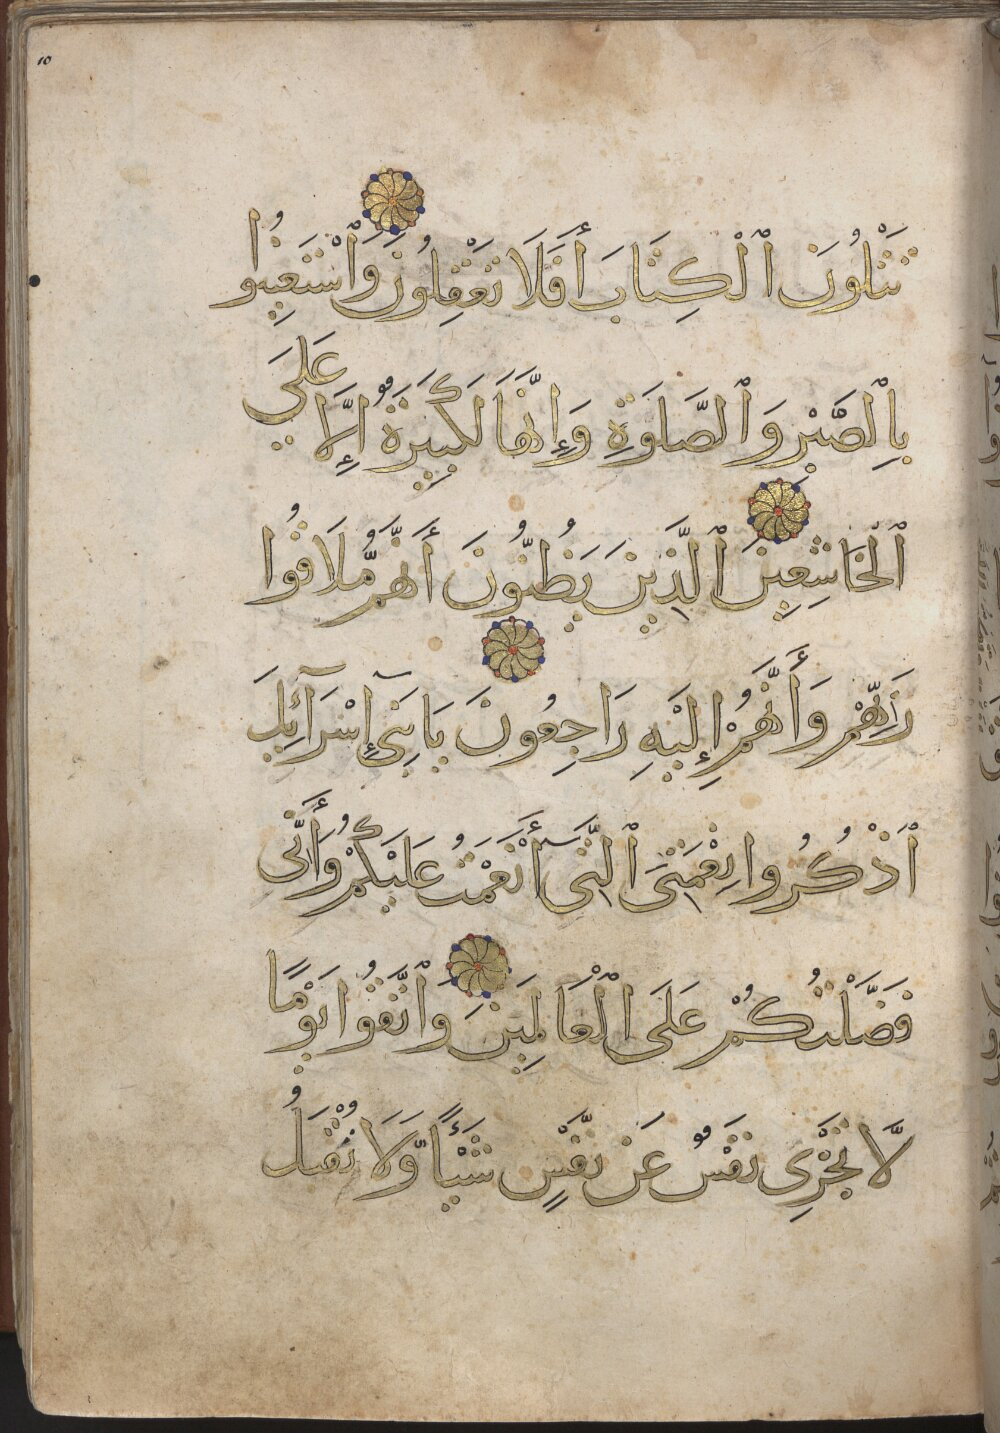 10
تَتْلُونَ ٱلْكِتَابَ أَفَلَا تَعْقِلُونَ وَٱسْتَعِينُوا
بِٱلصَّبْرِ وَٱلصَّلَوٰةِ وَإِنَّهَا لَكَبِيرَةٌ إِلَّا عَلَى
ٱلْخَاشِعِينَ ٱلَّذِينَ يَظُنُّونَ أَنَّهُم مُّلَاقُوا
رَبِّهِمْ وَأَنَّهُمْ إِلَيْهِ رَاجِعُونَ يَابَنِىٓ إِسْرَآئِيلَ
ٱذْكُرُوا نِعْمَتِىَ ٱلَّتِىٓ أَنْعَمْتُ عَلَيْكُمْ وَأَنِّى
فَضَّلْتُكُمْ عَلَى ٱلْعَالَمِينَ وَٱتَّقُوا يَوْمًا
لَّا تَجْزِى نَفْسٌ عَن نَّفْسٍ شَيْـًٔا وَّلَا تُقْبَلُ